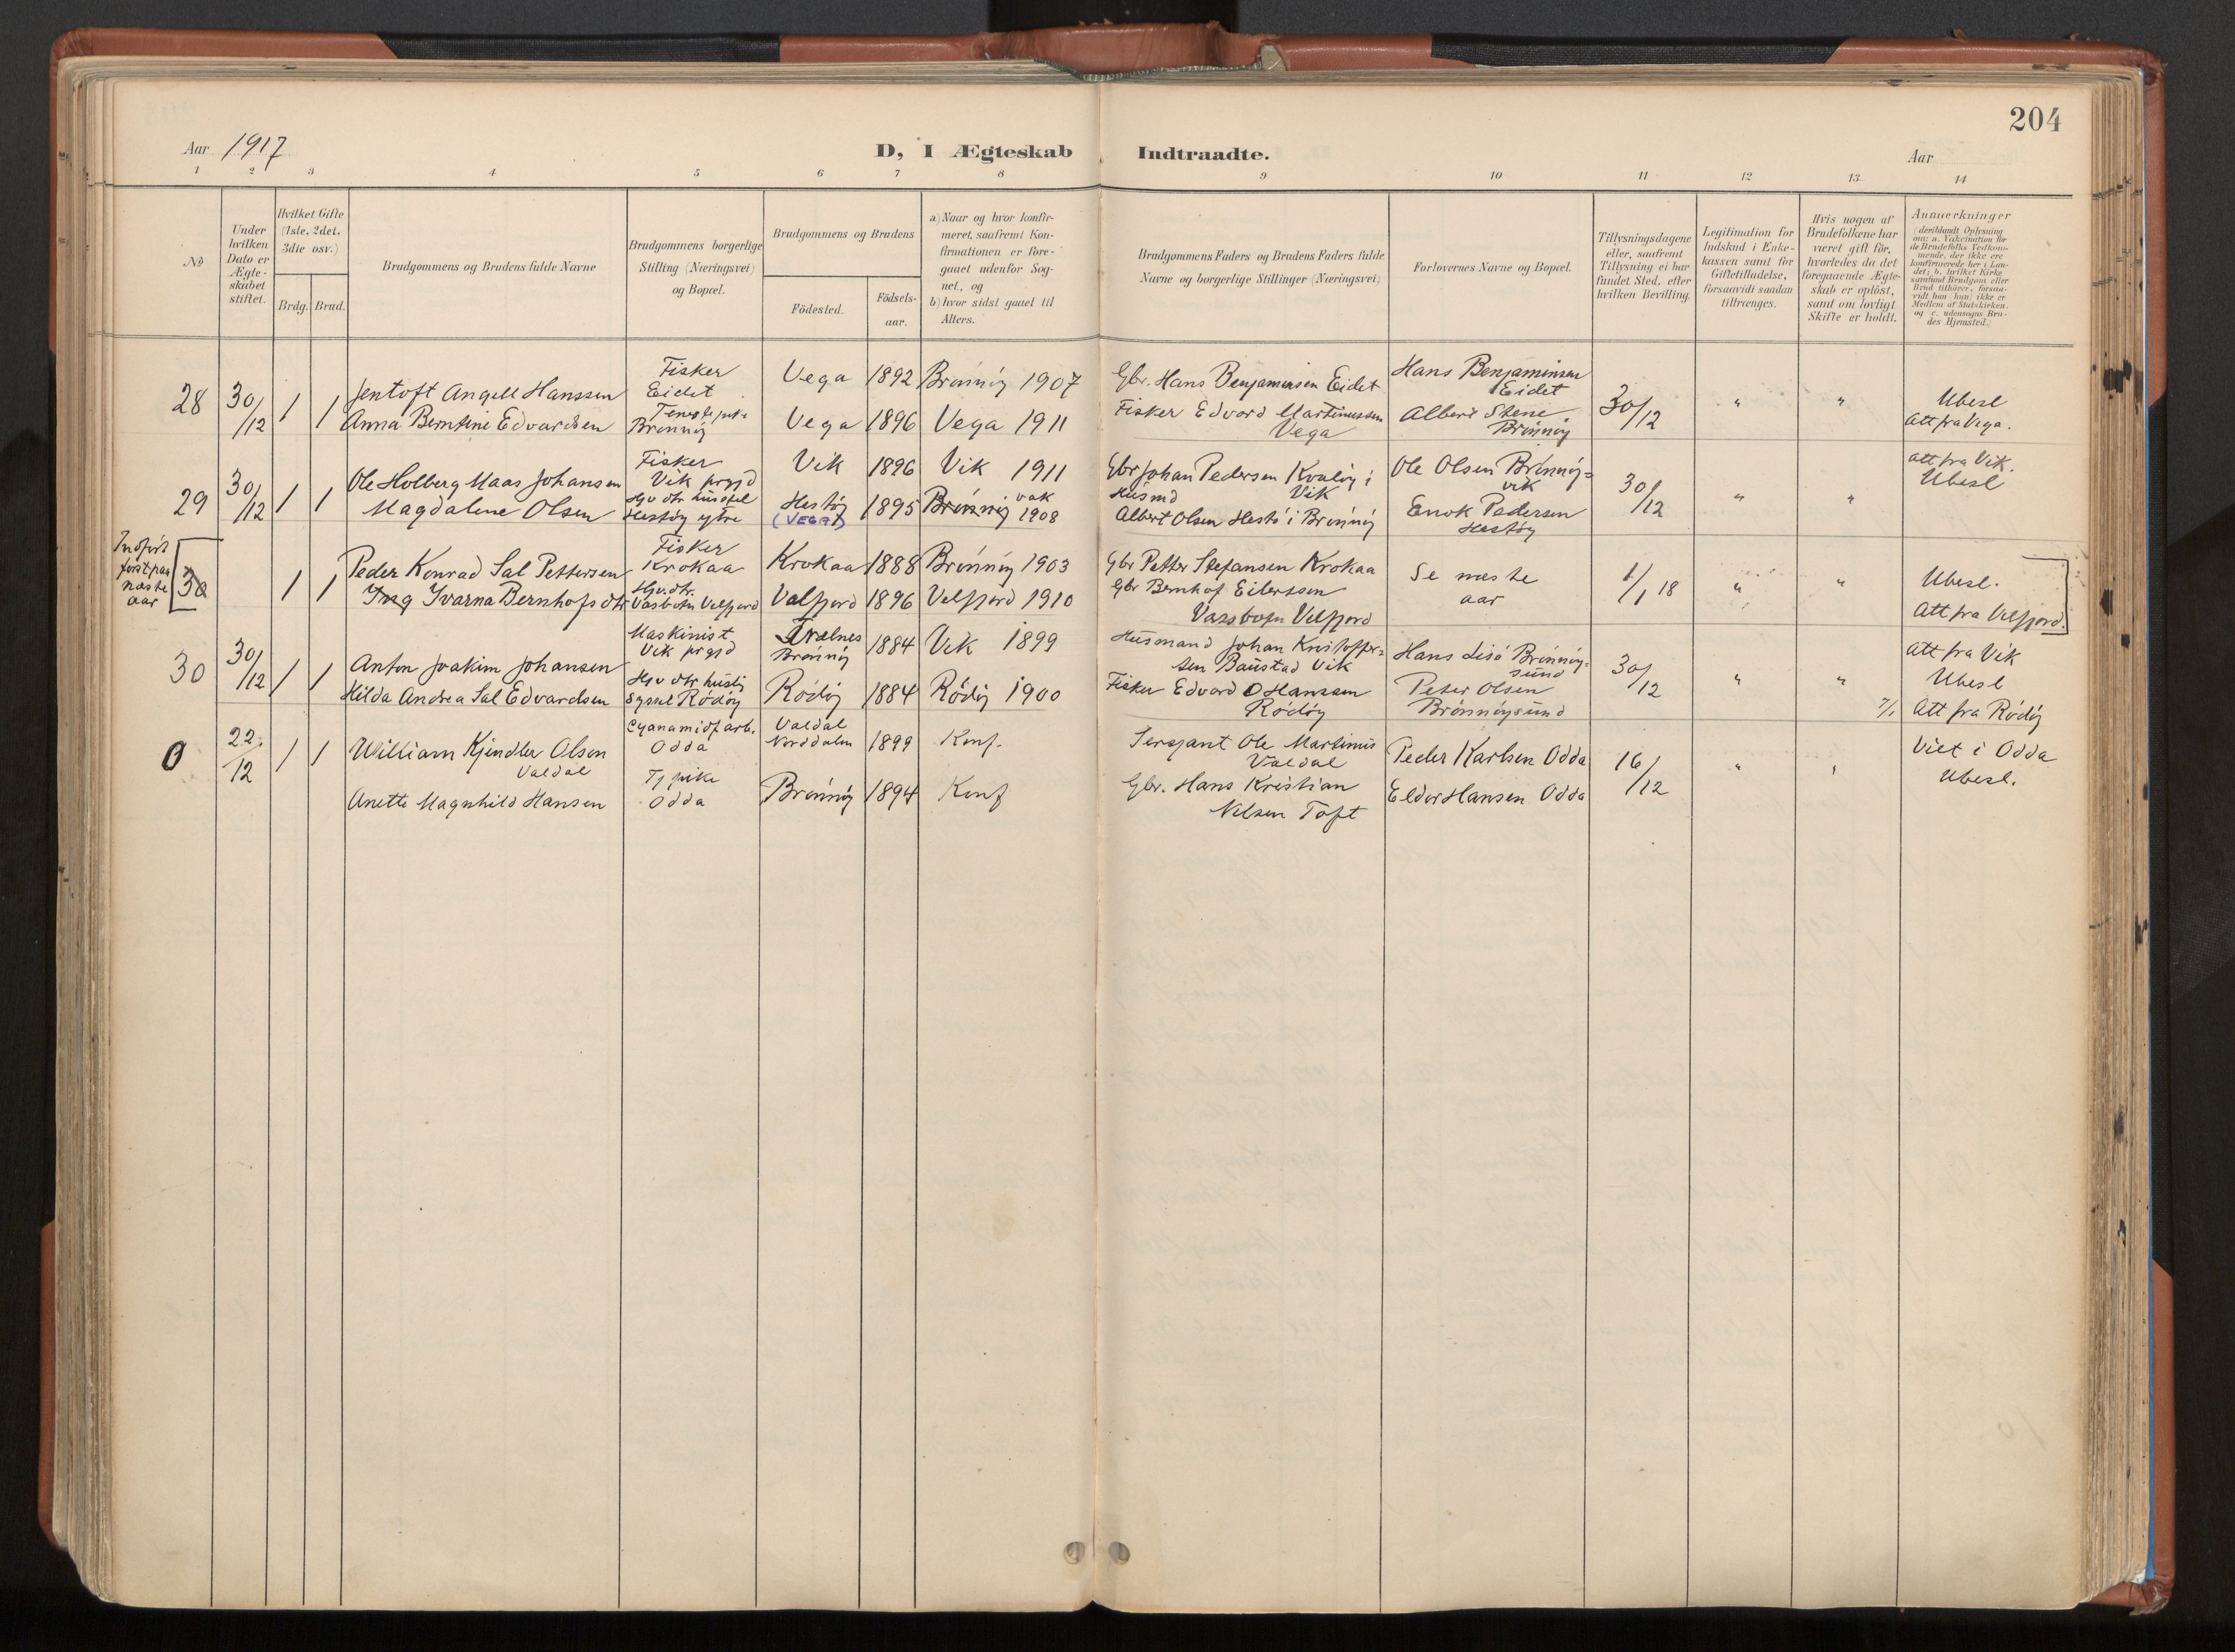 204
Aar 1917
D, I Ægteskab Indtraadte.
Aar
1 2 3 4 5 6 7 8 9 10 11 12 13 14
No
Under hvilken Dato er Ægte-skabet stiftet.
Hvilket Gifte (1ste, 2det, 3die osv.)
Brdg. Brud.
Brudgommens og Brudens fulde Navne
Brudgommens borgerlige Stilling (Næringsvei) og Bopæl.
Brudgommens og Brudens
Födested.
Födsels-aar.
a) Naar og hvor konfir-meret, saafremt Kon-firmationen er fore-gaaet udenfor Sog-net, og
b) hvor sidst gaaet til Alters.
Brudgommens Faders og Brudens Faders fulde Navne og borgerlige Stillinger (Næringsvei)
Forlovernes Navne og Bopæl.
Tillysningsdagene eller, saafremt Tillysning ei har fundet Sted, efter hvilken Bevilling.
Legitimation for Indskud i Enke-kassen samt for Giftetilladelse, forsaavidt saadan tiltrænges.
Hvis nogen af Brudefolkene har været gift før, hvorledes da det foregaaende Ægte-skab er oplöst, samt om lovligt Skifte er holdt.
Anmerkninger (deriblandt Oplysning om: a. Vakcination for de Brudefolks Vedkom-mende, der ikke ere konfirmerede her i Lan-det; b. hvilket Kirke-samfund Brudgom eller Brud tilhører, forsaa-vidt han (hun) ikke er Medlem af Statskirken, og c. udensogns Bru-des Hjemsted.)
28 30/12 1 1
Jentoft Angell Hanssen
Fisker
Eidet
Vega 1892 Brønnøy 1907
Gbr. Hans Benjaminsen Eidet
Hans Benjaminsen
Eidet
30/12 " "
Ubesl
Anna Berntine Edvardsen
Brønnøy
Vega 1896 Vega 1911
Fisker Edvard Martinussen
Vega
Albert Stene
Brønnøy
Att fra Vega.
29 30/12 1 1
Ole Holberg Maas Johansen
Fisker
Vik prgjd
Vik 1896 Vik 1911
Gbr Johan Pedersen Kvaløy i
Vik
Ole Olsen Brønnøy-
vik
30/12 " "
att fra Vik.
Ubesl
Magdalene Olsen
Hestøy ytre
Hestøy
(VEGA)
1895 Brønnøy vak 1908
Husmd
Albert Olsen Hestø i Brønnøy
Enok Pedersen
Hestøy
Indført
først paa
næste
aar
30 1 1
Peder Konrad Sal Pettersen
Fisker
Krokaa
Krokaa 1888 Brønnøy 1903
Gbr Petter Stefansen Krokaa
Se næste
aar
1/1 18 " "
Ubesl.
Ivarna Bernhofsdtr
Gbr. dtr.
Vasbotn Velfjord
Velfjord 1896 Velfjord 1910
Gbr Bernhof Eilertsen
Vassbotn Velfjord
Att fra Velfjord.
30 30/12 1 1
Anton Joakim Johansen
Maskinist
Vik prgjd
Trælnes
Brønnøy
1884 Vik 1899
Husmand Johan Kristoffer-
sen Baustad Vik
Hans Lisø Brønnøy-
sund
30/12 " "
att fra Vik
Ubesl
Hilda Andrea Sal Edvardsen
syssel Rødøy
Rødøy 1884 Rødøy 1900
Fisker Edvard O Hansen
Rødøy
Peter Olsen
Brønnøysund
7/1 Att fra Rødøy
0 22/12 1 1
William Kjendler Olsen
Valdal
Cyanamidfarb.
Odda
Valdal
Norddalen
1899 Konf.
Sersjant Ole Martinus
Valdal
Peder Karlsen Odda
16/12 " "
Viet i Odda
Ubesl.
Anette Magnhild Hansen
Tj pike
Odda
Brønnøy 1894 Konf
Gbr. Hans Kristian
Nilsen Toft
Eldor Hansen Odda